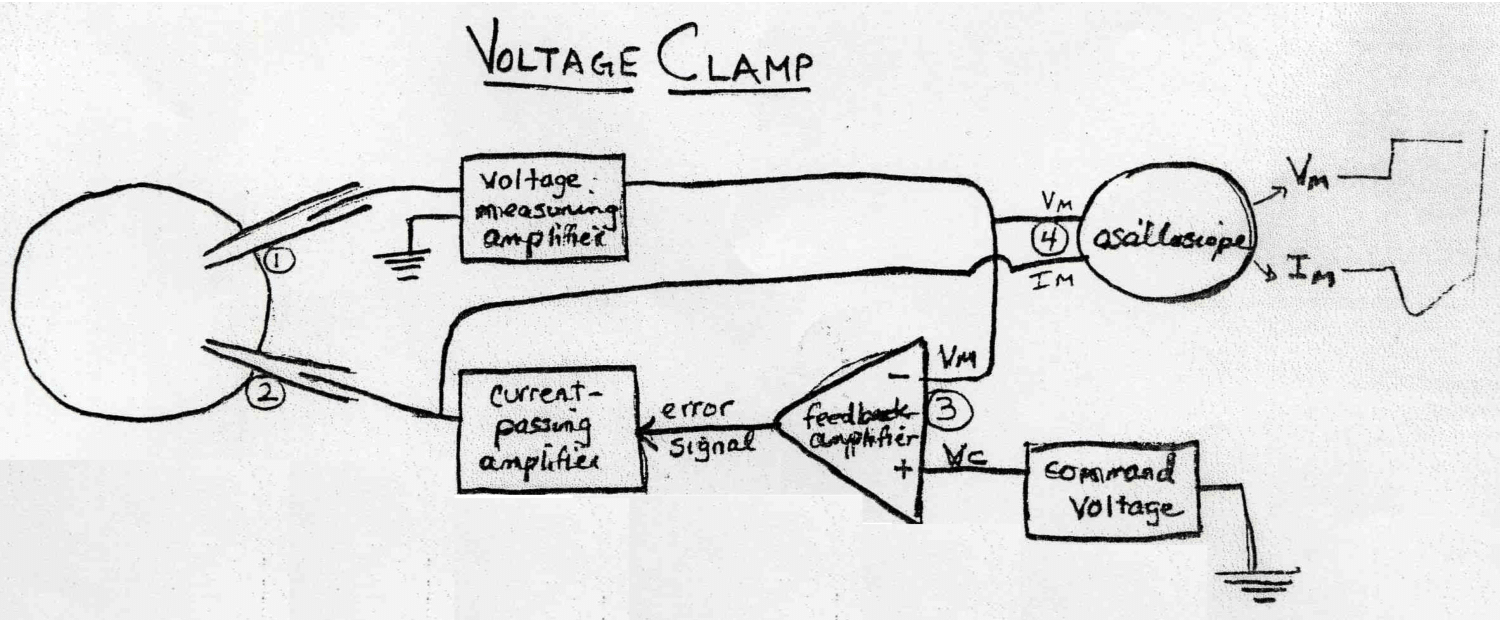 VOLTAGE CLAMP
voltage
measuring
amplifier
1
VM
4
IM
oscilloscope
VM
IM
2
current-
passing
amplifier
error
signal
feedback
amplifier
-
+
VM
3
Vc
command
voltage